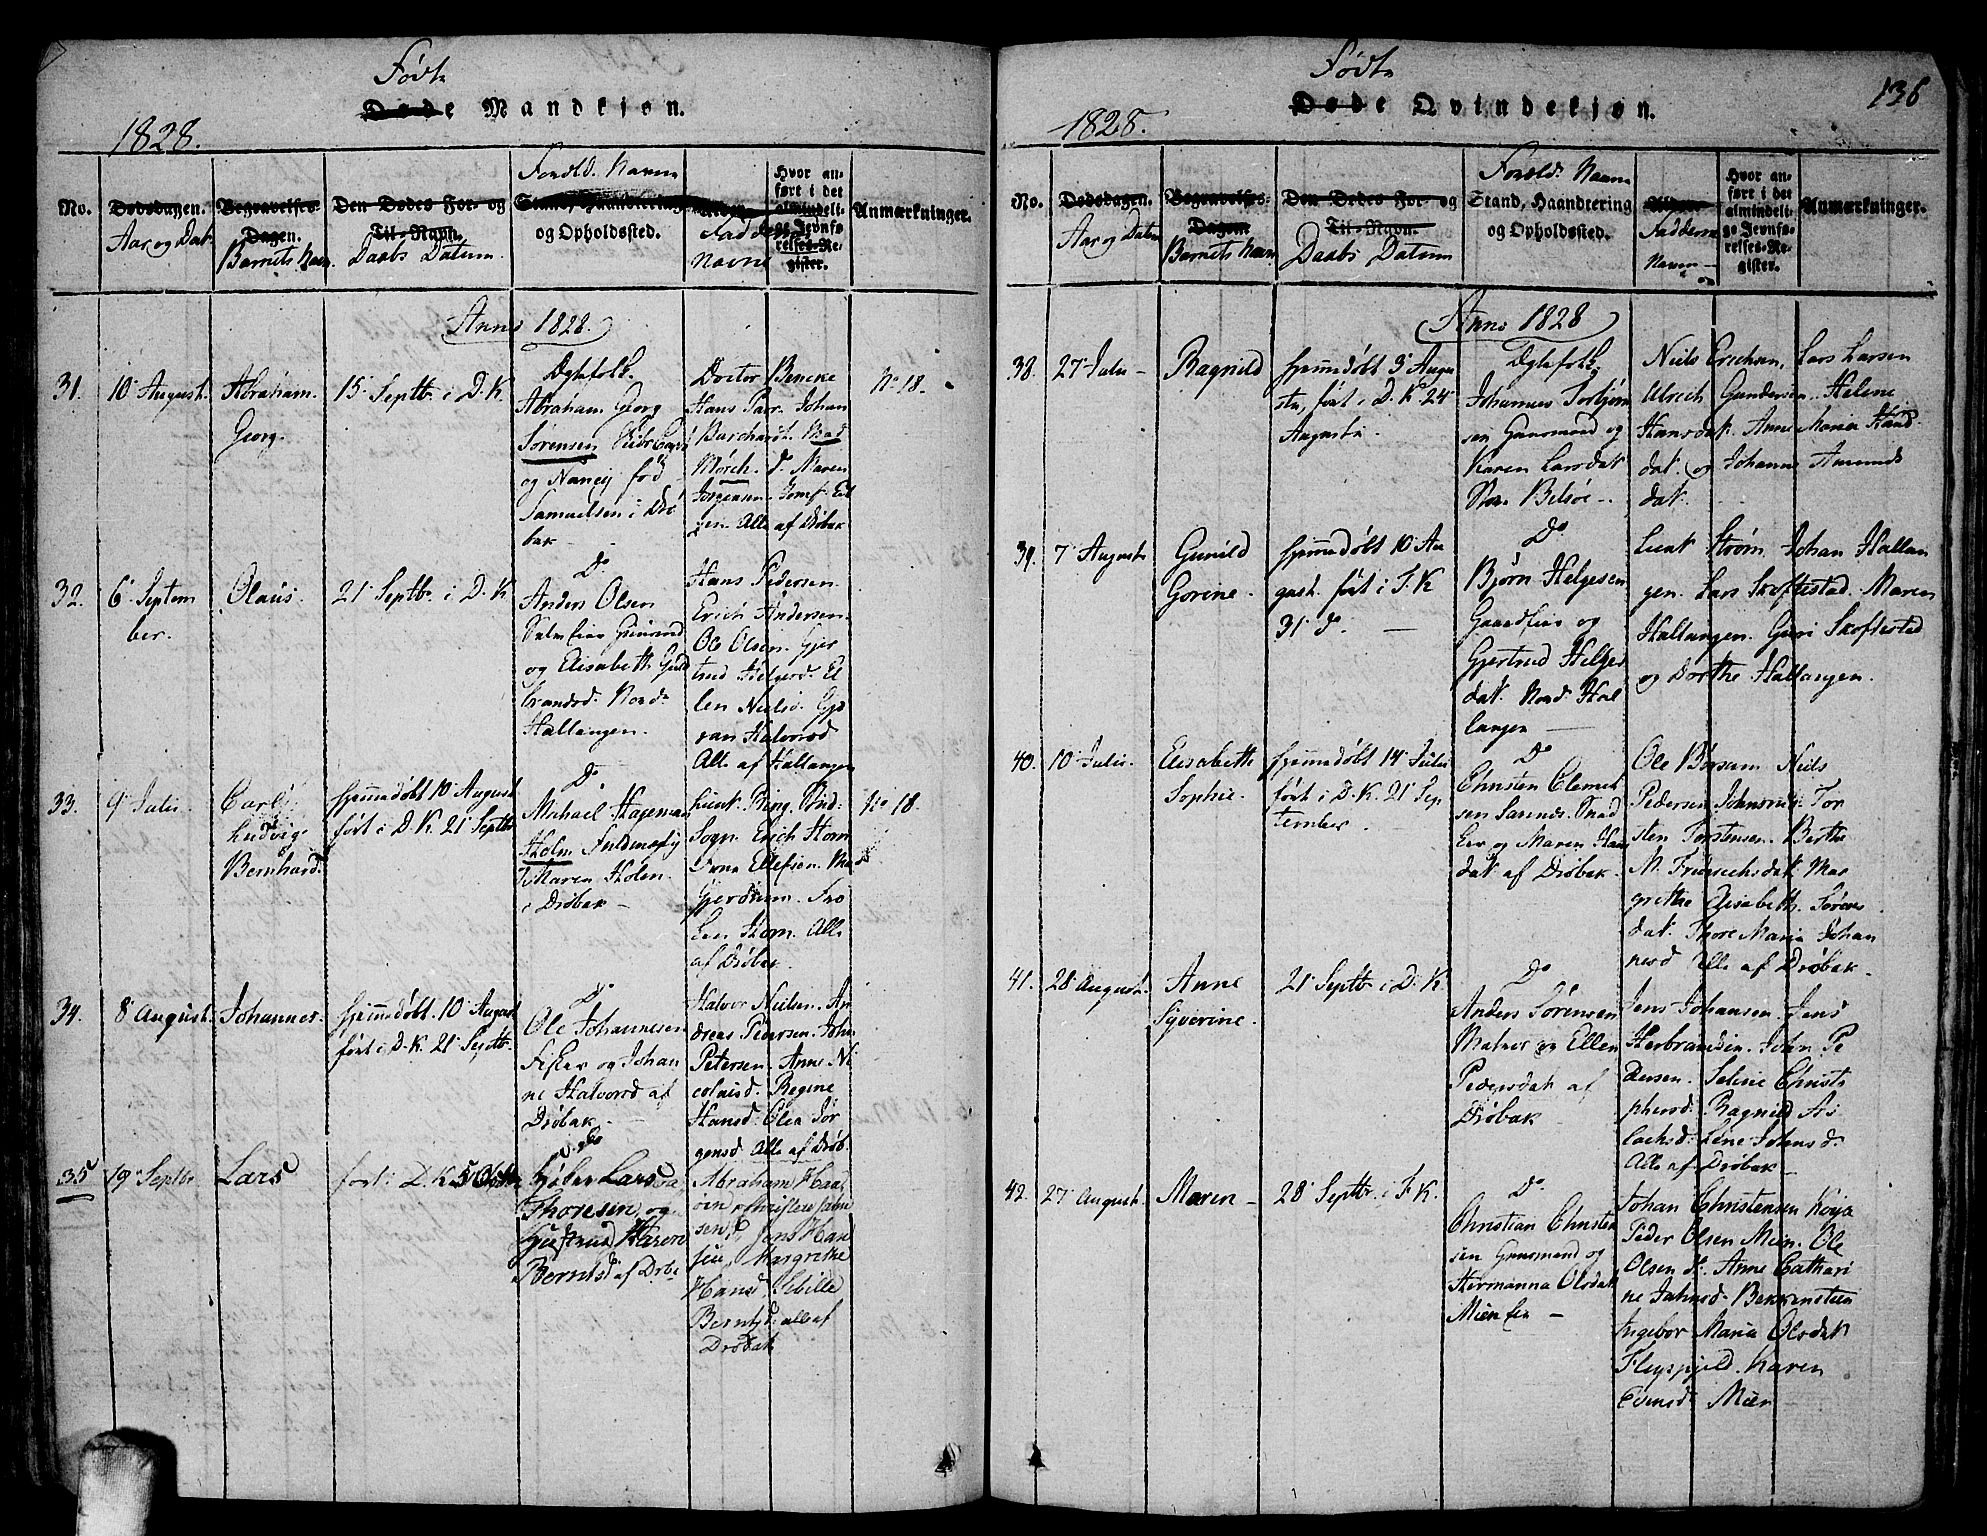 Født
Døde Mandkjøn.
1828.
No.
Dødsdagen.
Aar og Dat.
Begravelses-
Dagen.
Barnets Navn
Den Dødes For- og
Til-Navn.
Daabs Datum
Foræld. Navne
Stand, Haandtering
og Opholdssted.
Alder.
Fadderne
Navne
Hvor an-
ført i det
almindeli-
ge Jevnfø-
relses-Re-
gister.
Anmærkninger.
Anno 1828.
31.
10 August.
Abraham
Georg.
15 Septbr. i D. K.
Ægtefolk.
Abraham Georg
Sørensen
og Nancy fød
Samuelsen i Drø
bak
Doctor Bencke
Hans Parr. Johan
Burchardt. Mad
Mørch. D. Maren
Jørgensen. Jomf. El
Alle af Drøbak
No 18.
32.
6 Septem
ber.
Olaus.
21 Septbr. i D. K.
Do
Anders Olsen
og Elisabeth Guld
brandsd. Nord
Hallangen.
Hans Pedersen
Erich Andersen.
Ole Olsen. Gjer
trud Helgesd. El
len Nielsd. Gjø
ran Halvorsd
Alle af Hallangen
33.
9 Julii
Carl
Ludvig
Bernhard.
hjemmedøbt 10 August
ført i D. K. 21 Septbr
Do
Michael Hageman
Holm
Maren Holm
i Drøbak
Ring.
Sogn. Erich Horn
Ellefsen. Mad
Gjerdrum. Frø
Horn. Alle
af Drøbak.
No 18.
34.
8 August.
Johannes.
hjemmedøbt 10 August
ført i D. K. 21 Septbr.
Do
Ole Johannesen
Fisker og Johan
ne Halvorsd af
Drøbak
Halvor Nielsen. An
dreas Pedersen. Johan
Petersen. Anne Ni
colaisd. Regine
Hansd. Olea Jør
gensd. Alle af Drøb.
35
19 Septbr
Lars
ført i D. K. 5 Octbr
Do
Lars
Thoresen, og
Gjertrud Maren
Berntsd af Drøb.
Abraham Haa
Jens Han
sen, Margrethe
Hansd. Sibille
Berntsd: alle af
Drøbak
Født
Døde Qvindekjøn.
136
1828.
No.
Dødsdagen.
Aar og Datum
Begravelses-
Dagen
Barnets Navn
Den Dødes For- og
Til-Navn.
Daabs Datum
Foræld. Navne
Stand, Haandtering
og Opholdssted.
Alder.
Faddernes
Navne
Hvor an-
ført i det
almindeli-
ge Jevnfø-
relses-Re-
gister.
Anmærkninger.
Anno 1828
38.
27 Julii
Ragnild
hjemmedøbt 3 Augu
sti, ført i D. K. 24
Augusti
Ægtefolk
Johannes Torbjørn
sen Gaasmand og
Karen Larsdat
Belsøe
Niels Erichsen, Lars Larsen
Ulrich Gundersen. Helene
Hansdat. Anne Maria Haand
dat. og Johanne Amunds
dat.
39.
7 Augusti
Gunild
Gorine.
hjemmedøbt 10 Au
gust. ført i F. K
31 do.
Do
Bjørn Helgesen
Gaardfæer og
Gjertrud Helges
dat. Nord Hal
langen
Strøm. Johan Hallan
gen. Lars Skoftestad. Maren
Hallangen. Guri Skoftestad
og Dorthe Hallangen.
40.
10 Julii.
Elisabeth
Sophie.
hjemmedøbt 14 Julii
ført i D. K. 21 Sep
tember.
Do
Christen Clemet
sen
og Maren Hans
dat af Drøbak.
Ole Børsum. Niels
Pedersen. Tor
sten Torstensen. Berthe
M. Friderichsdat. Mar
grethe Elisabeth Sørens
dat. Thore Maria Johan
nesd Alle af Drøbak
41.
28 August.
Anne
Syverine.
21 Septbr. i D. K.
Do
Anders Sørensen
Matros og Ellen
Pedersdat af
Drøbak
Jens Johansen. Jens
Herbrandsen. John Pe
dersen. Seline Christ
phersd. Ragnild As
lachsd. Lene Johnsd.
Alle af Drøbak
42.
27 August.
Maren
28 Septbr. i F. K.
Do
Christian Christen
sen Gaasmand og
Hermanna Olsdat
Johan Christensen
Peder Olsen Mien. Ole
Olsen do. Anne Cathari
ne Jahnsd. Bekkensteen
Ingebor Maria Olsdat
Karen
Evensd Mien